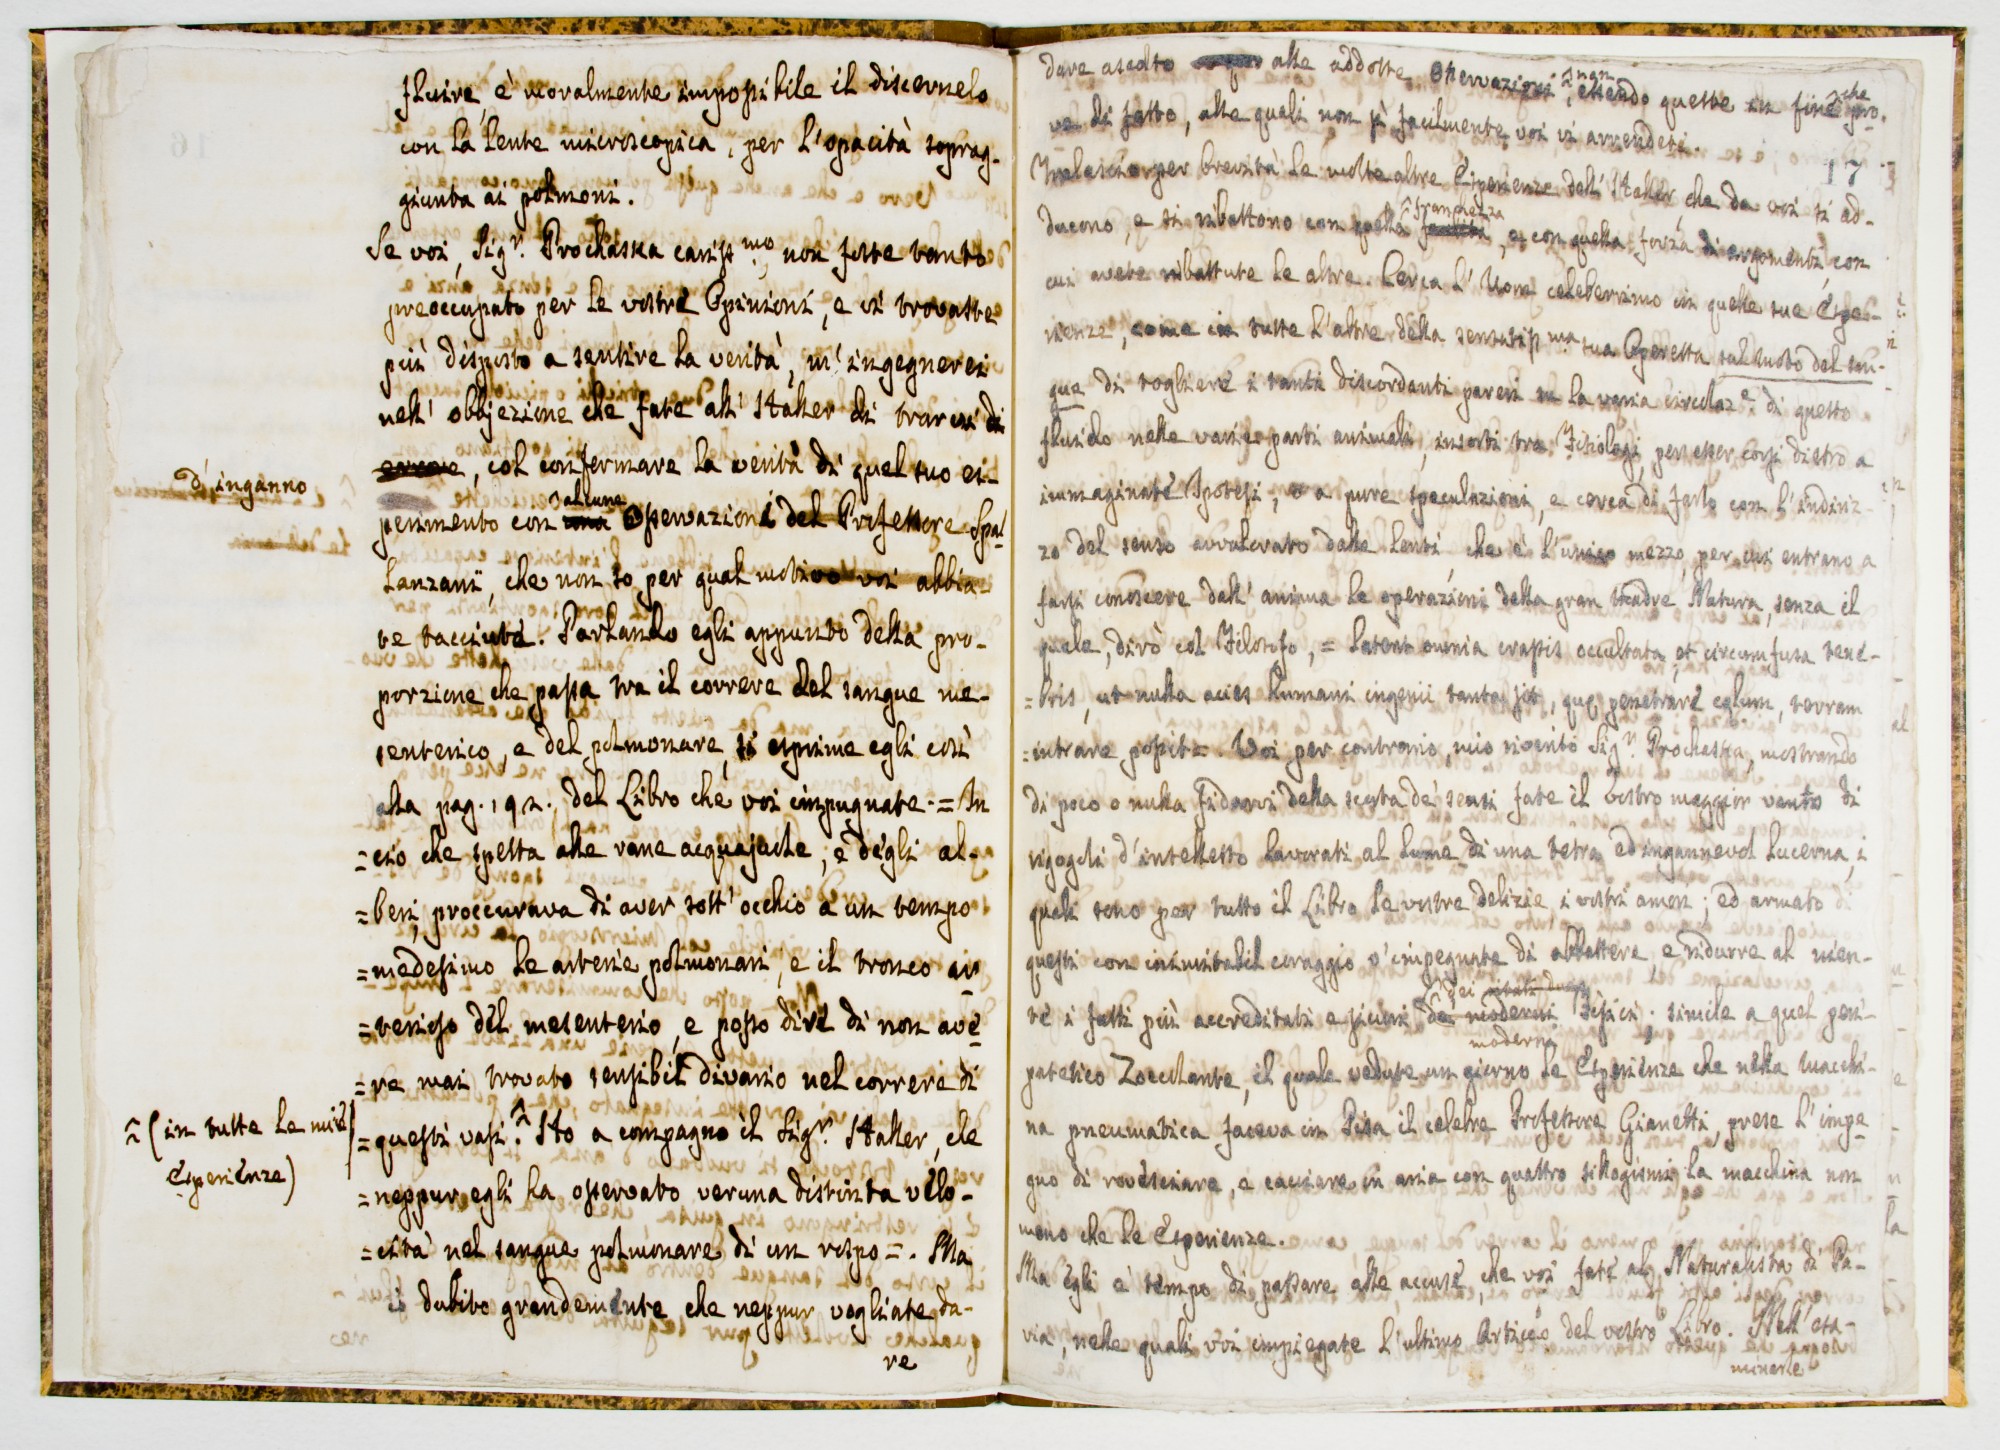 fluire, è moralmente impossibile il discernelo
con la lente microscopica, per l'opacità soprag-
giunta ai polmoni.
Se voi, Sig.r Prochaska cariss.mo, non foste tanto
preoccupato per le vostre Opinioni, e vi trovaste
più disposto a sentire la verità, m'ingegnerei
nell' obbjezione che fate all' Haller di trarvi di
d'inganno
errore, col confermare la verità di quel suo es-
perimento con una ^alcune Osservazioni del Professore Spal
lanzani, che non so per qual motivo voi abbia-
te tacciute. Parlando egli appunto della pro-
porzione che passa tra il correre del sangue me-
senterico, e del polmonare, si esprime egli così
alla pag. 192. del Libro che voi impugnate. = In
= ciò che spetta alle rane acquajuole, e degli al-
= beri, proccurava di aver sott' occhio a un tempo
= medesimo le arterie polmonari, e il tronco ar
= terioso del mesenterio, e posso dire di non ave
= re mai trovato sensibil divario nel correre di
^ (in tutte le mie
Esperienze)
= questi vasi.^ Ho a compagno il Sig.r Haller, che
= neppur egli ha osservato veruna distinta velo-
= cità nel sangue polmonare di un rospo =. Ma
io dubito grandemente che neppur vogliate da-
re
dare ascolto alle addotte Osservazioni, ^non essendo queste in fine ^che pro-
ve di fatto, alle quali non sì facilmente voi vi arrendete.
17
Tralascio per brevità le molte altre Esperienze dell' Haller, che da voi si ad-
ducono, e si ribattono con quella ^franchezza, e con quella forza di argomenti, con
cui avete ribattute le altre. Cerca l' Uom celeberrimo in quelle sue Espe-
rienze, come in tutte l'altre della sensatiss.ma sua Operetta sul Moto del San-
gue di togliere i tanti discordanti pareri su la varia circolaz.e di questo
fluido nelle varie parti animali, insorti tra Fisiologi, per esser corsi dietro a
immaginate Ipotesi, o a pure speculazioni, e cerca di farlo con l'indiriz-
zo del senso avvalorato dalle lenti, che è l'unico mezzo, per cui entrano a
farsi conoscere dall' anima le operazioni della gran Madre Natura, senza il
quale, dirò col Filosofo, = latent omnia crassis occultata, et circumfusa tene-
= bris, ut nulla acies humani ingenii tanta sit, quę penetrare cęlum, terram
= intrare possit =. Voi per contrario, mio riverito Sig.r Prochaska, mostrando
di poco o nulla fidarvi della scorta de' sensi fate il vostro maggior vanto di
rigogoli d'intelletto lavorati al lume di una tetra ed ingannevol lucerna, i
quali sono per tutto il Libro le vostre delizie, i vostri amori; ed armato di
questi con inimitabil coraggio v'impegnate di abbattere, e ridurre al nien-
te i fatti più accreditati e sicuri ^dei de' moderni Fisici; simile a quel peri-
moderni
patetico Zoccolante, il quale vedute un giorno le Esperienze che nella macchi-
na pneumatica faceva in Pisa il celebre Professore Gianetti, prese l'impe
gno di rovesciare, e cacciare in aria con quattro sillogismi la macchina non
meno che le Esperienze.
Ma egli è tempo di passare alle accuse, che voi fate al Naturalista di Pa-
via, nelle quali voi impiegate l'ultimo Articolo del vostro Libro. Nell' esa-
minarle